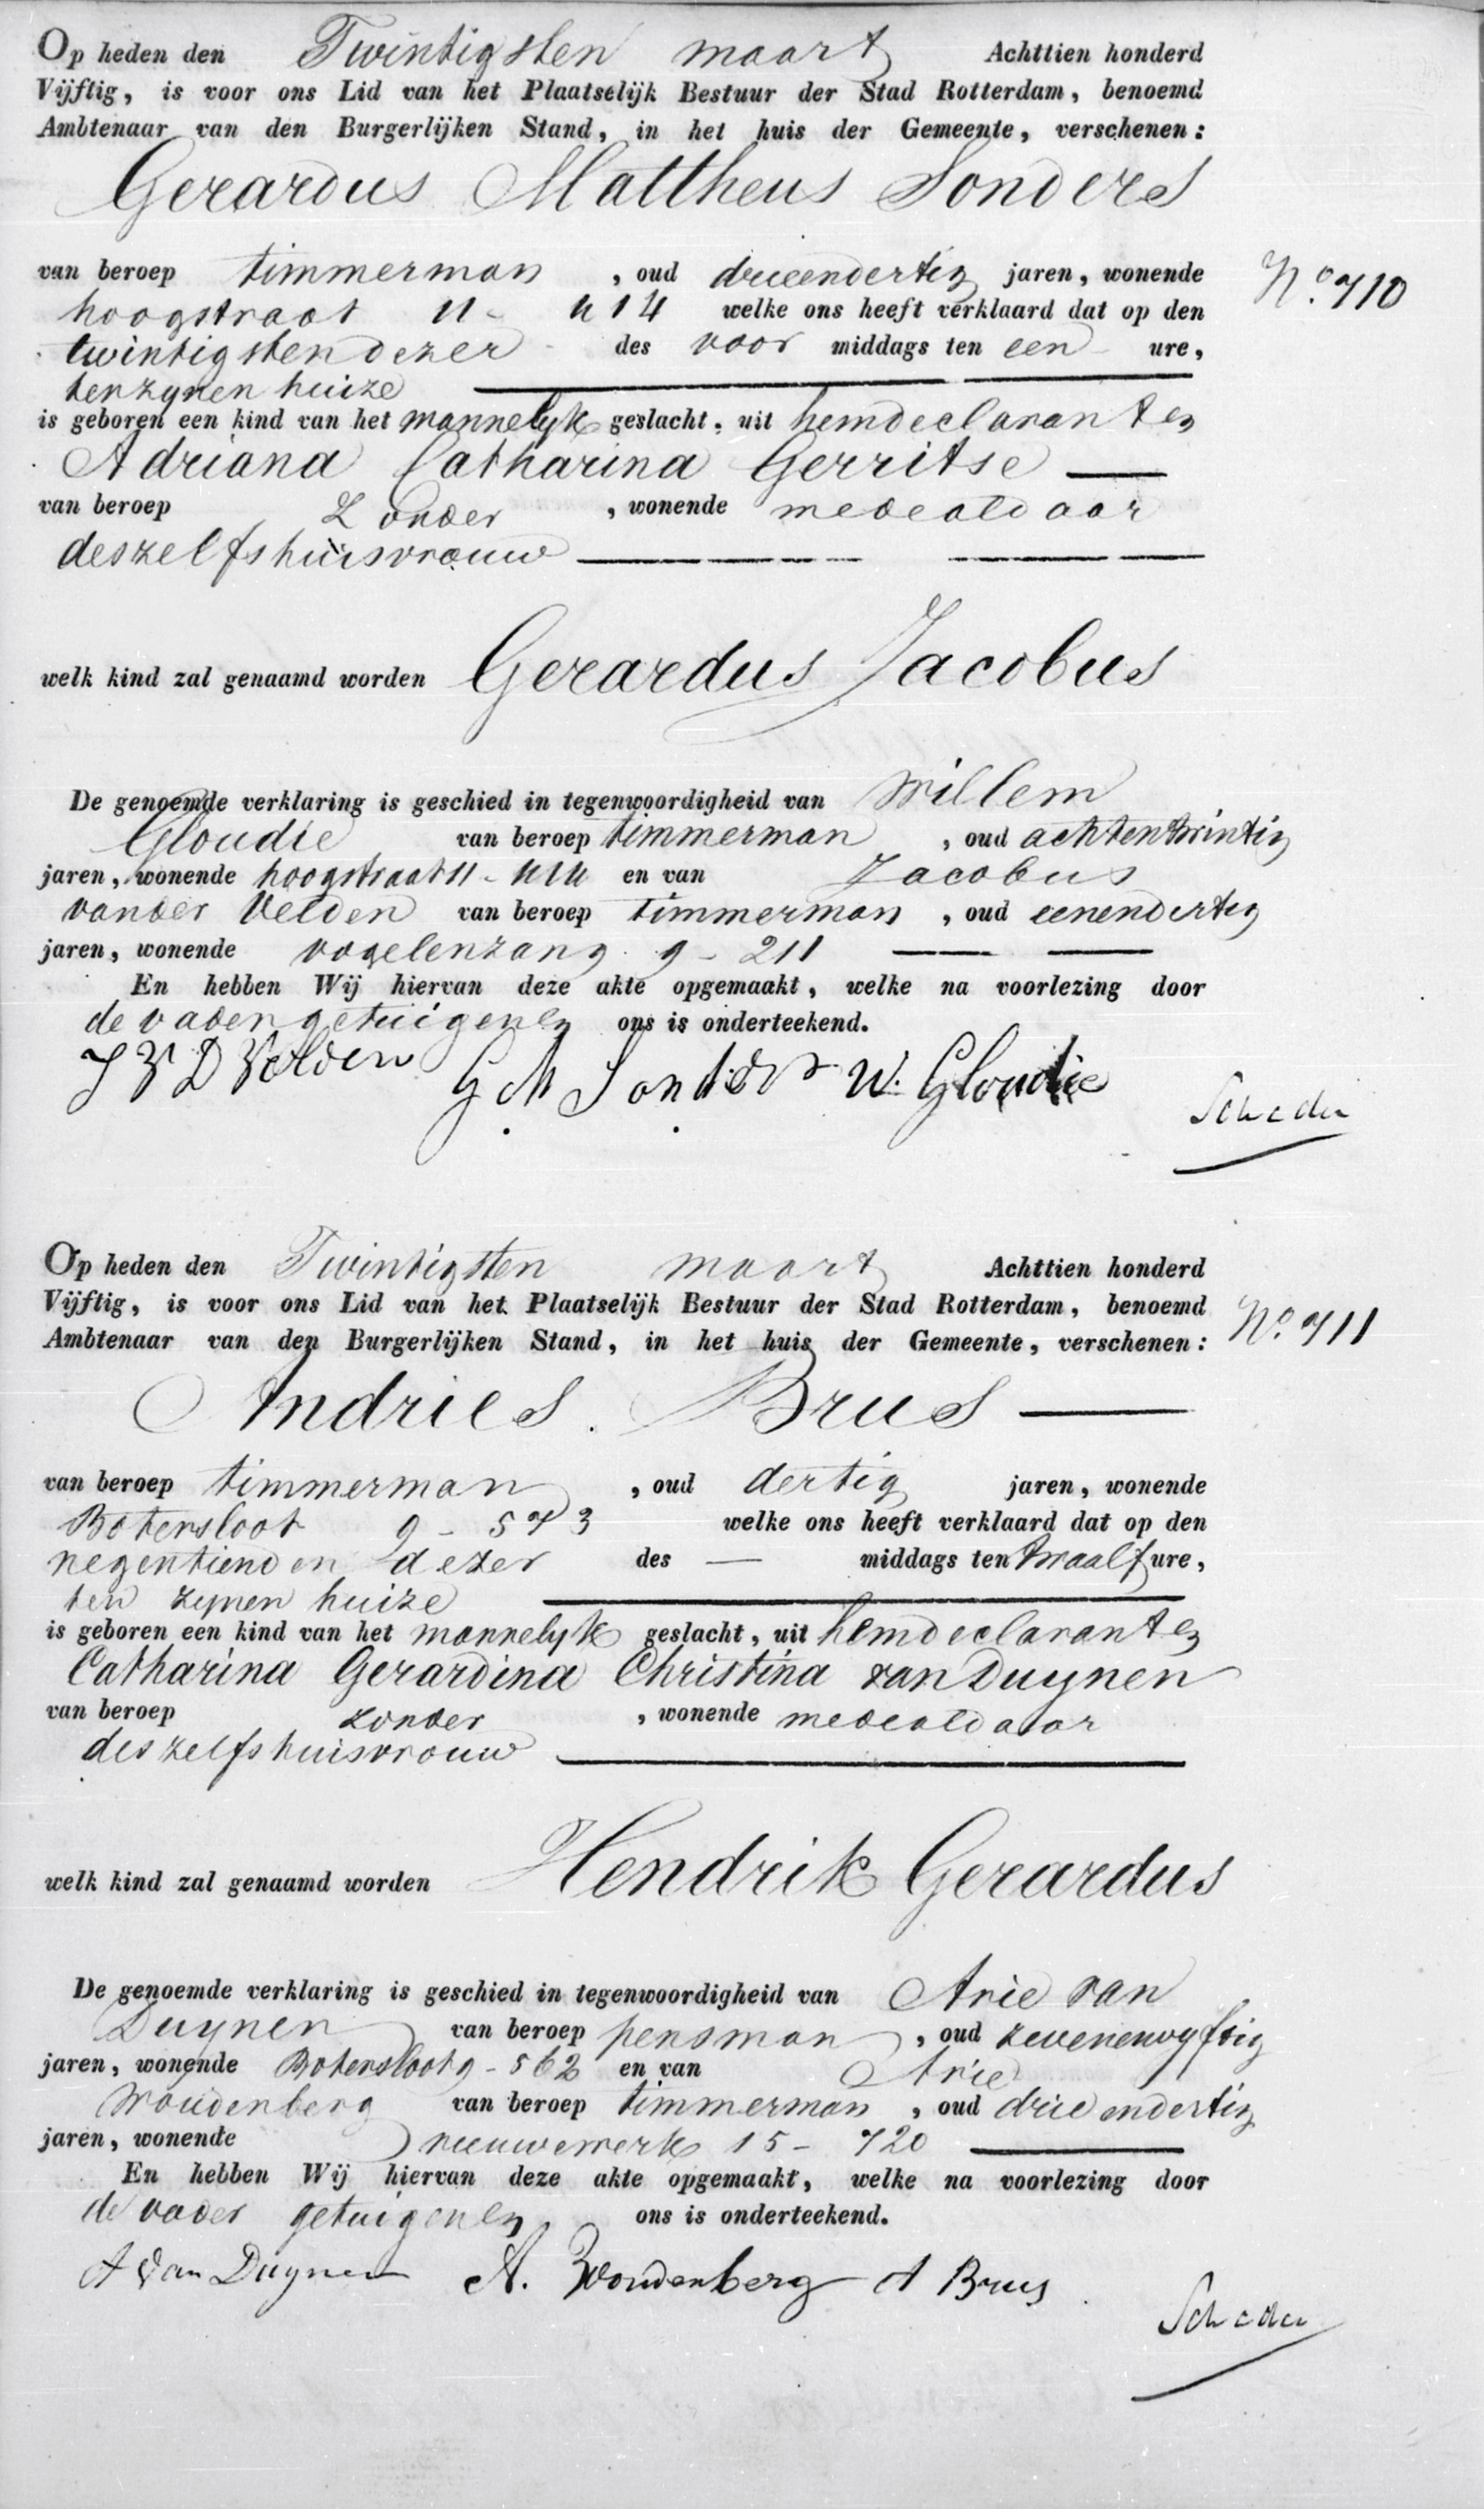 Op heden den Twintigsten maart Achttien honderd
Vijftig, is voor ons Lid van het Plaatselijk Bestuur der Stad Rotterdam, benoemd
Ambtenaar van den Burgerlijken Stand, in het huis der Gemeente, verschenen:
Gerardus Mattheus Sonders
van beroep timmerman, oud drieendertig jaren, wonende
No. 710
hoogstraat 11 - 414 welke ons heeft verklaard dat op den
twintigsten dezer des voor middags ten een ure,
ten zynen huize
is geboren een kind van het mannelyk geslacht, uit hem declarant en
Adriana Catharina Gerritse
van beroep Zonder, wonende mede aldaar
deszelfs huisvrouw
welk kind zal genaamd worden Gerardus Jacobus
De genoemde verklaring is geschied in tegenwoordigheid van Willem
Gloudie van beroep timmerman, oud achtentwintig
jaren, wonende hoogstraat 11 - 414 en van Jacobus
van der Velden van beroep timmerman, oud eenendertig
jaren, wonende vogelenzang 9 - 211
En hebben Wij hiervan deze akte opgemaakt, welke na voorlezing door
de vader getuigen en ons is onderteekend.
J V D Velden G M Sonders W. Gloudie
Op heden den Twintigsten maart Achttien honderd
Vijftig, is voor ons Lid van het Plaatselijk Bestuur der Stad Rotterdam, benoemd
Ambtenaar van den Burgerlijken Stand, in het huis der Gemeente, verschenen:
No. 711
Andries Brus
van beroep timmerman, oud dertig jaren, wonende
Botersloot 9 - 573 welke ons heeft verklaard dat op den
negentienden dezer des — middags ten twaalf ure,
ten zynen huize
is geboren een kind van het mannelyk geslacht, uit hem declarant en
Catharina Gerardina Christina van Duynen
van beroep zonder, wonende mede aldaar
deszelfs huisvrouw
welk kind zal genaamd worden Hendrik Gerardus
De genoemde verklaring is geschied in tegenwoordigheid van Arie van
Duynen van beroep pensman, oud zevenenvyftig
jaren, wonende Botersloot 9 - 562 en van Arie
Woudenberg van beroep timmerman, oud drieendertig
jaren, wonende nieuwewerk 15 - 720
En hebben Wij hiervan deze akte opgemaakt, welke na voorlezing door
de vader getuigen en ons is onderteekend.
A Van Duynen A. Woudenberg A Brus